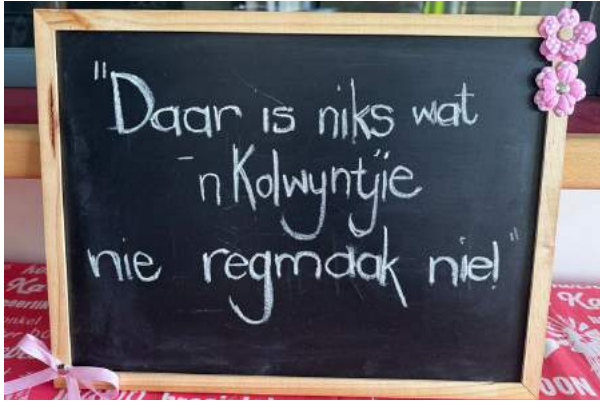 "Daar is niks wat
'n Kolwyntjie
nie regmaak nie!"